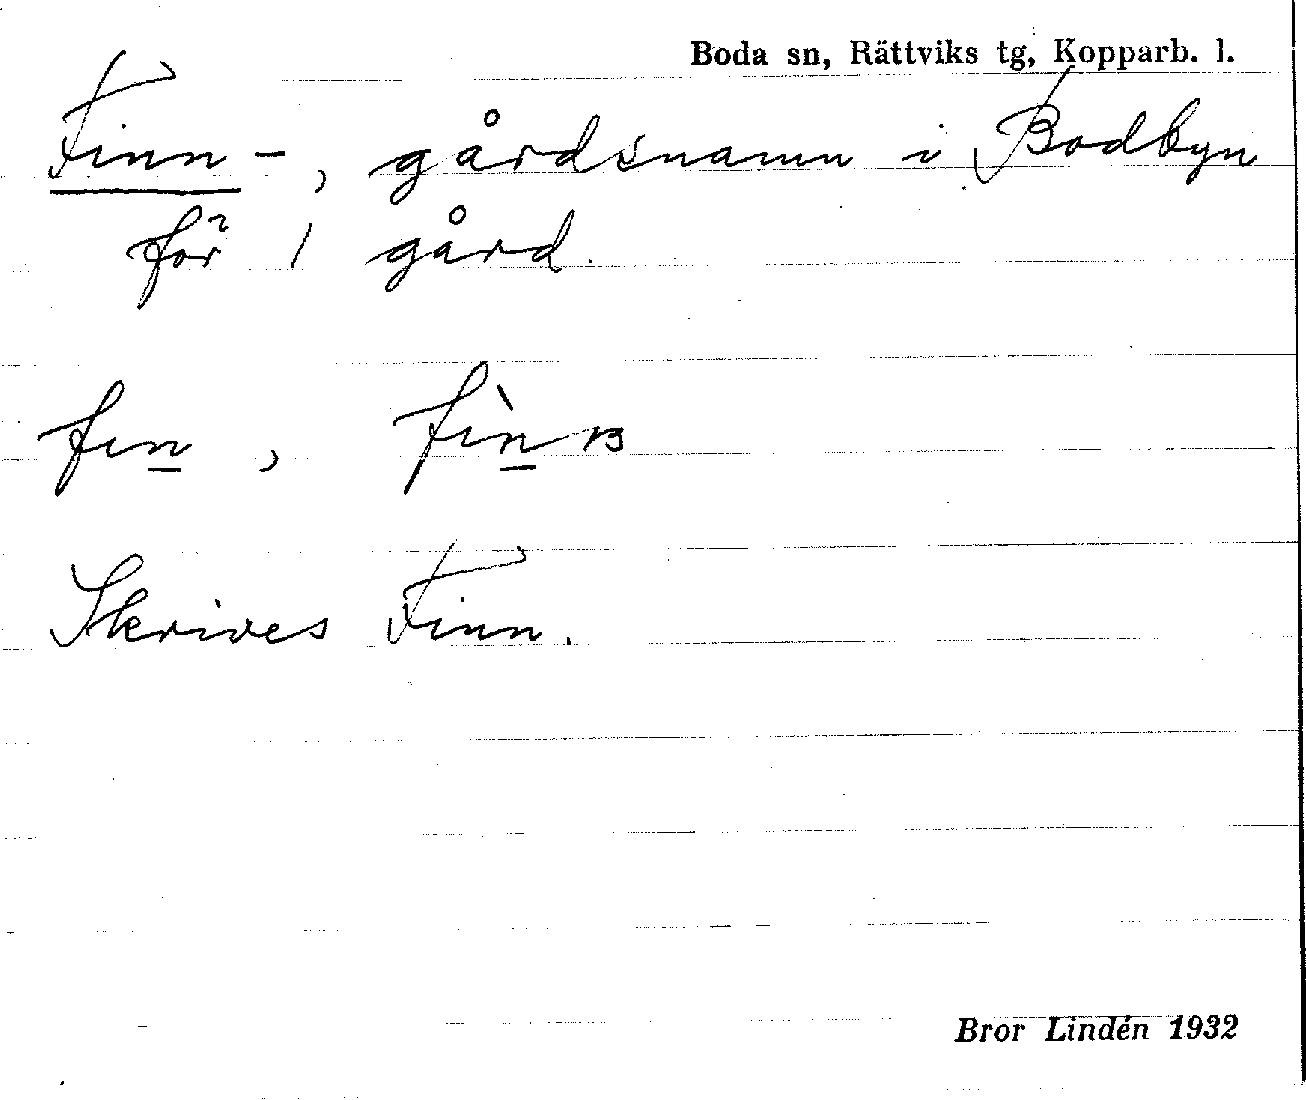 Boda sn, Rättviks tg, Kopparb. l.
Finn-, gårdsnamn i Bodbyn
för 1 gård.
fin̲, fìn̲
Skrives Finn.
Bror Lindén 1932